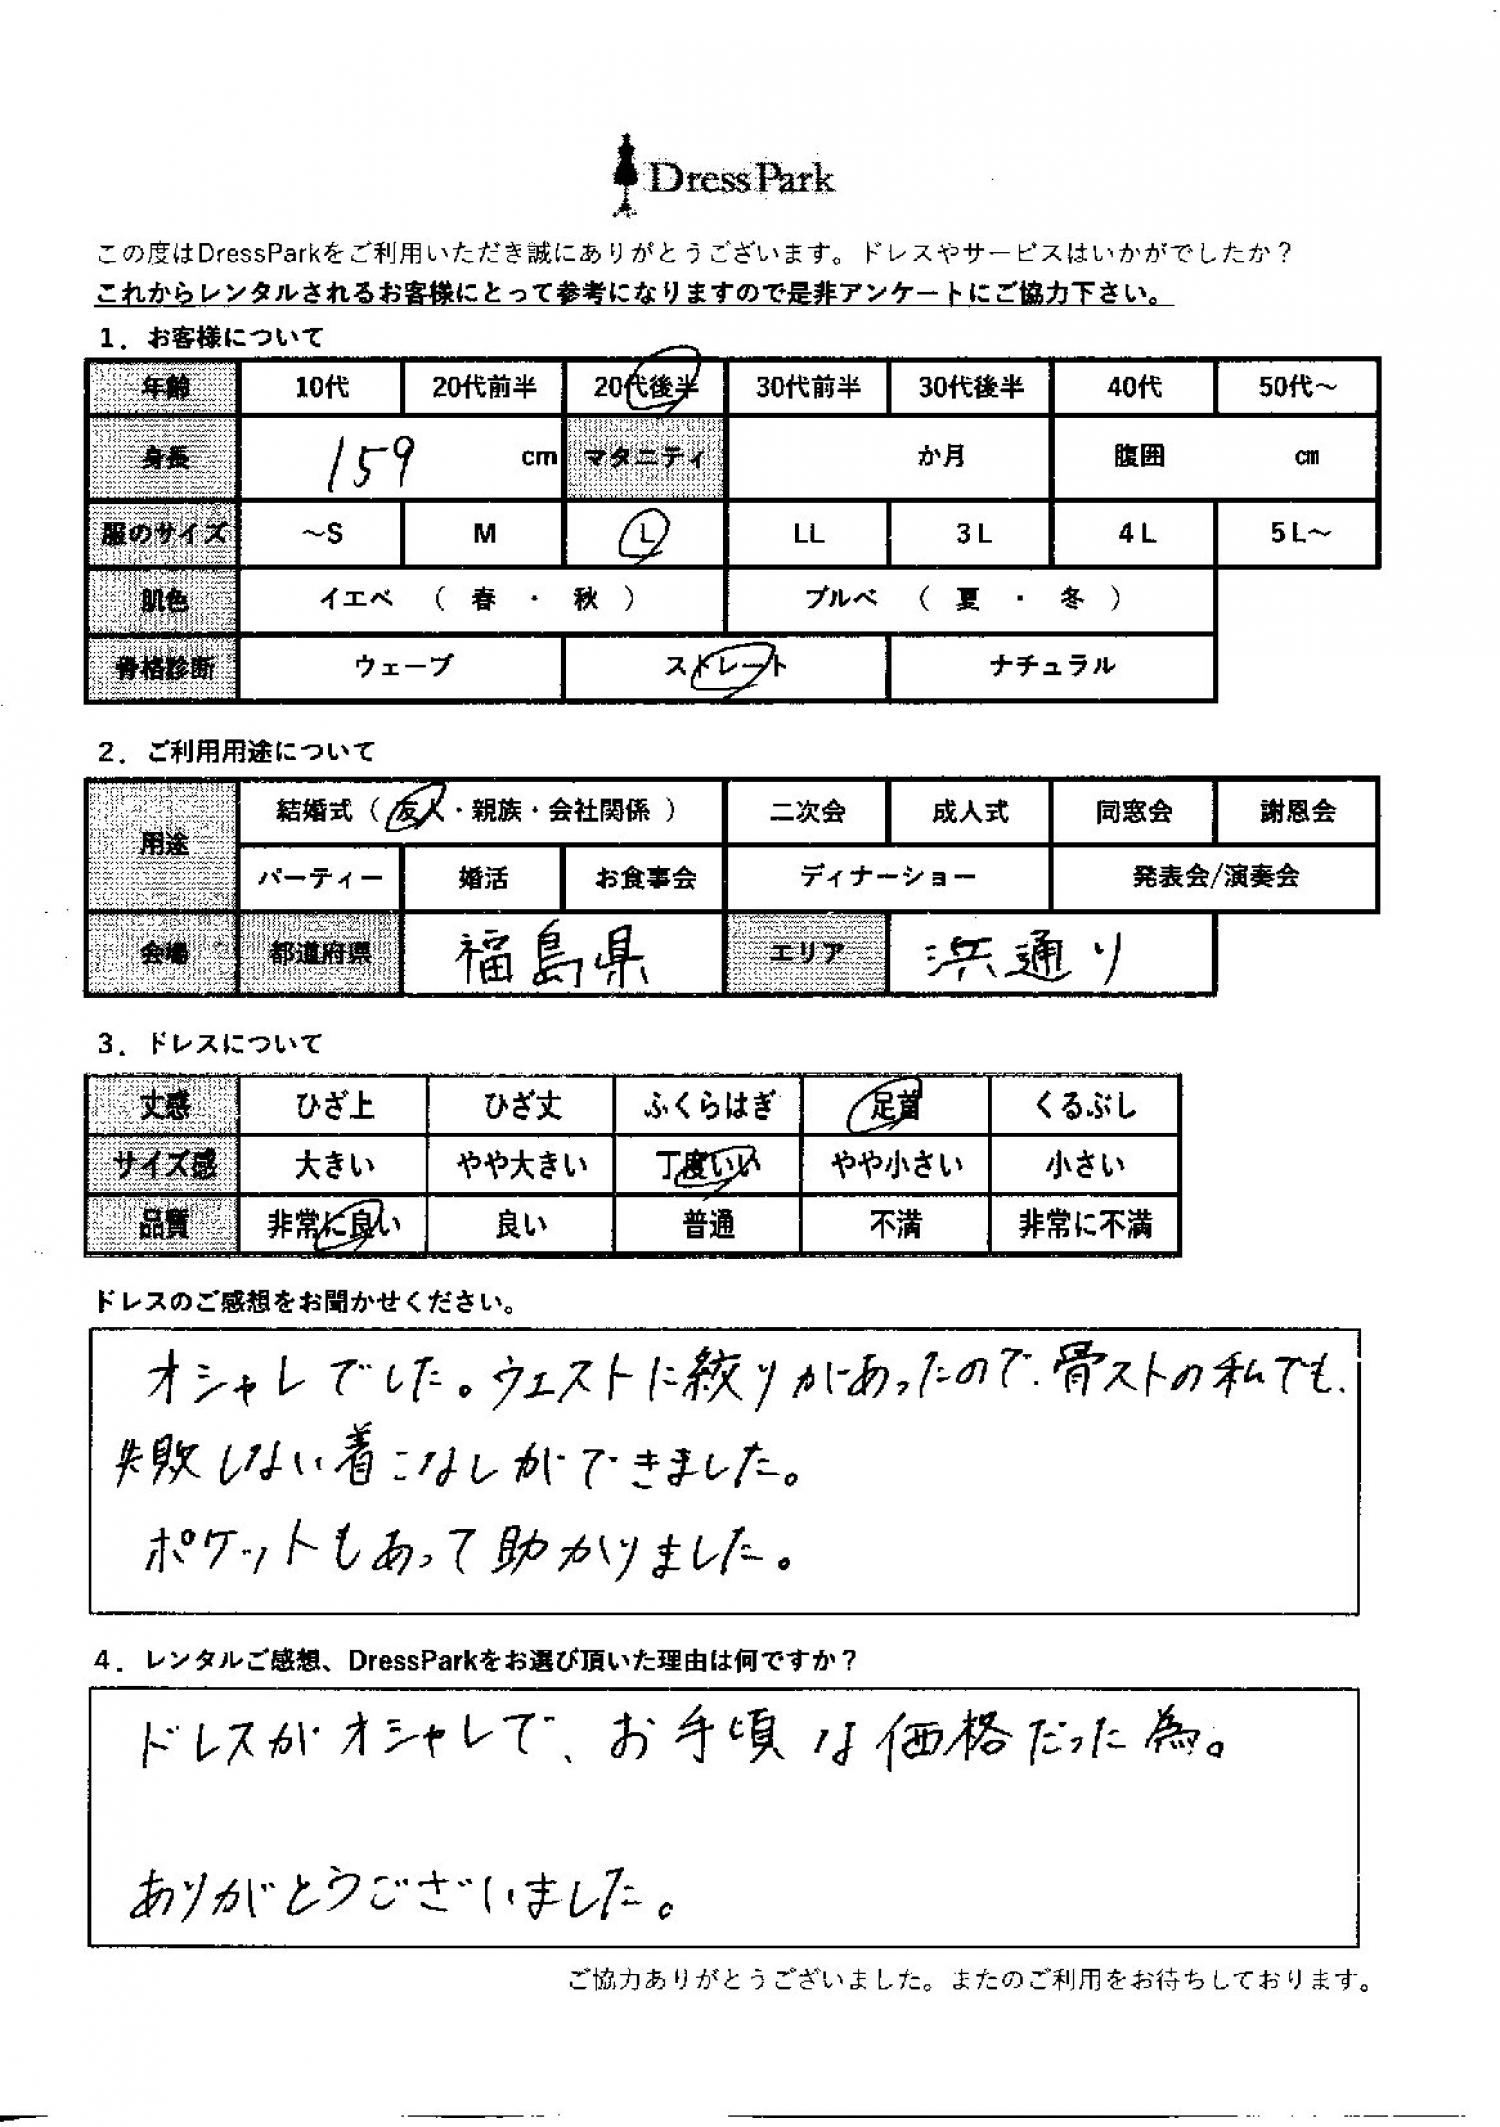 DressPark
この度はDressParkをご利用いただき誠にありがとうございます。ドレスやサービスはいかがでしたか？
これからレンタルされるお客様にとって参考になりますので是非アンケートにご協力下さい。
1．お客様について
年齢 10代 20代前半 20代後半 30代前半 30代後半 40代 50代～
身長 159 cm マタニティ か月 腹囲 cm
服のサイズ ～S M L LL 3L 4L 5L～
肌色 イエベ （ 春 ・ 秋 ） ブルベ （ 夏 ・ 冬 ）
骨格診断 ウェーブ ストレート ナチュラル
2．ご利用用途について
用途 結婚式（ 友人・親族・会社関係 ） 二次会 成人式 同窓会 謝恩会
パーティー 婚活 お食事会 ディナーショー 発表会/演奏会
会場 都道府県 福島県 エリア 浜通り
3．ドレスについて
丈感 ひざ上 ひざ丈 ふくらはぎ 足首 くるぶし
サイズ感 大きい やや大きい 丁度いい やや小さい 小さい
品質 非常に良い 良い 普通 不満 非常に不満
ドレスのご感想をお聞かせください。
オシャレでした。ウエストに絞りがあったので、骨ストの私でも、
失敗しない着こなしができました。
ポケットもあって助かりました。
4．レンタルご感想、DressParkをお選び頂いた理由は何ですか？
ドレスがオシャレで、お手頃な価格だった為。
ありがとうございました。
ご協力ありがとうございました。またのご利用をお待ちしております。